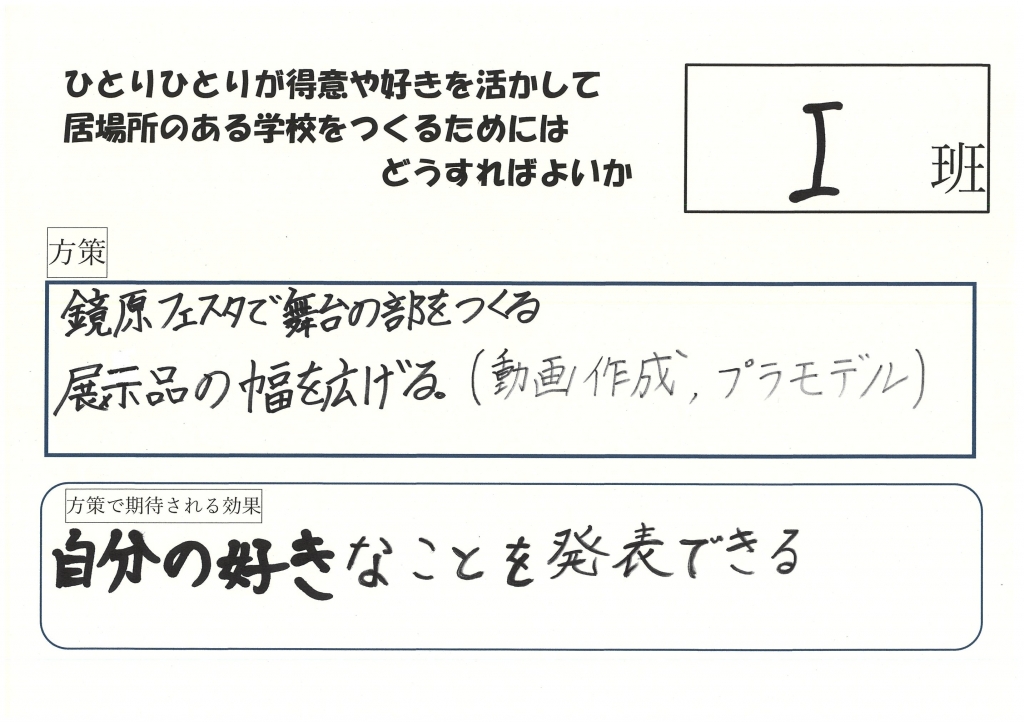 ひとりひとりが得意や好きを活かして
居場所のある学校をつくるためには
どうすればよいか
I 班
方策
鏡原フェスタで舞台の部をつくる
展示品の幅を広げる。(動画作成、プラモデル)
方策で期待される効果
自分の好きなことを発表できる